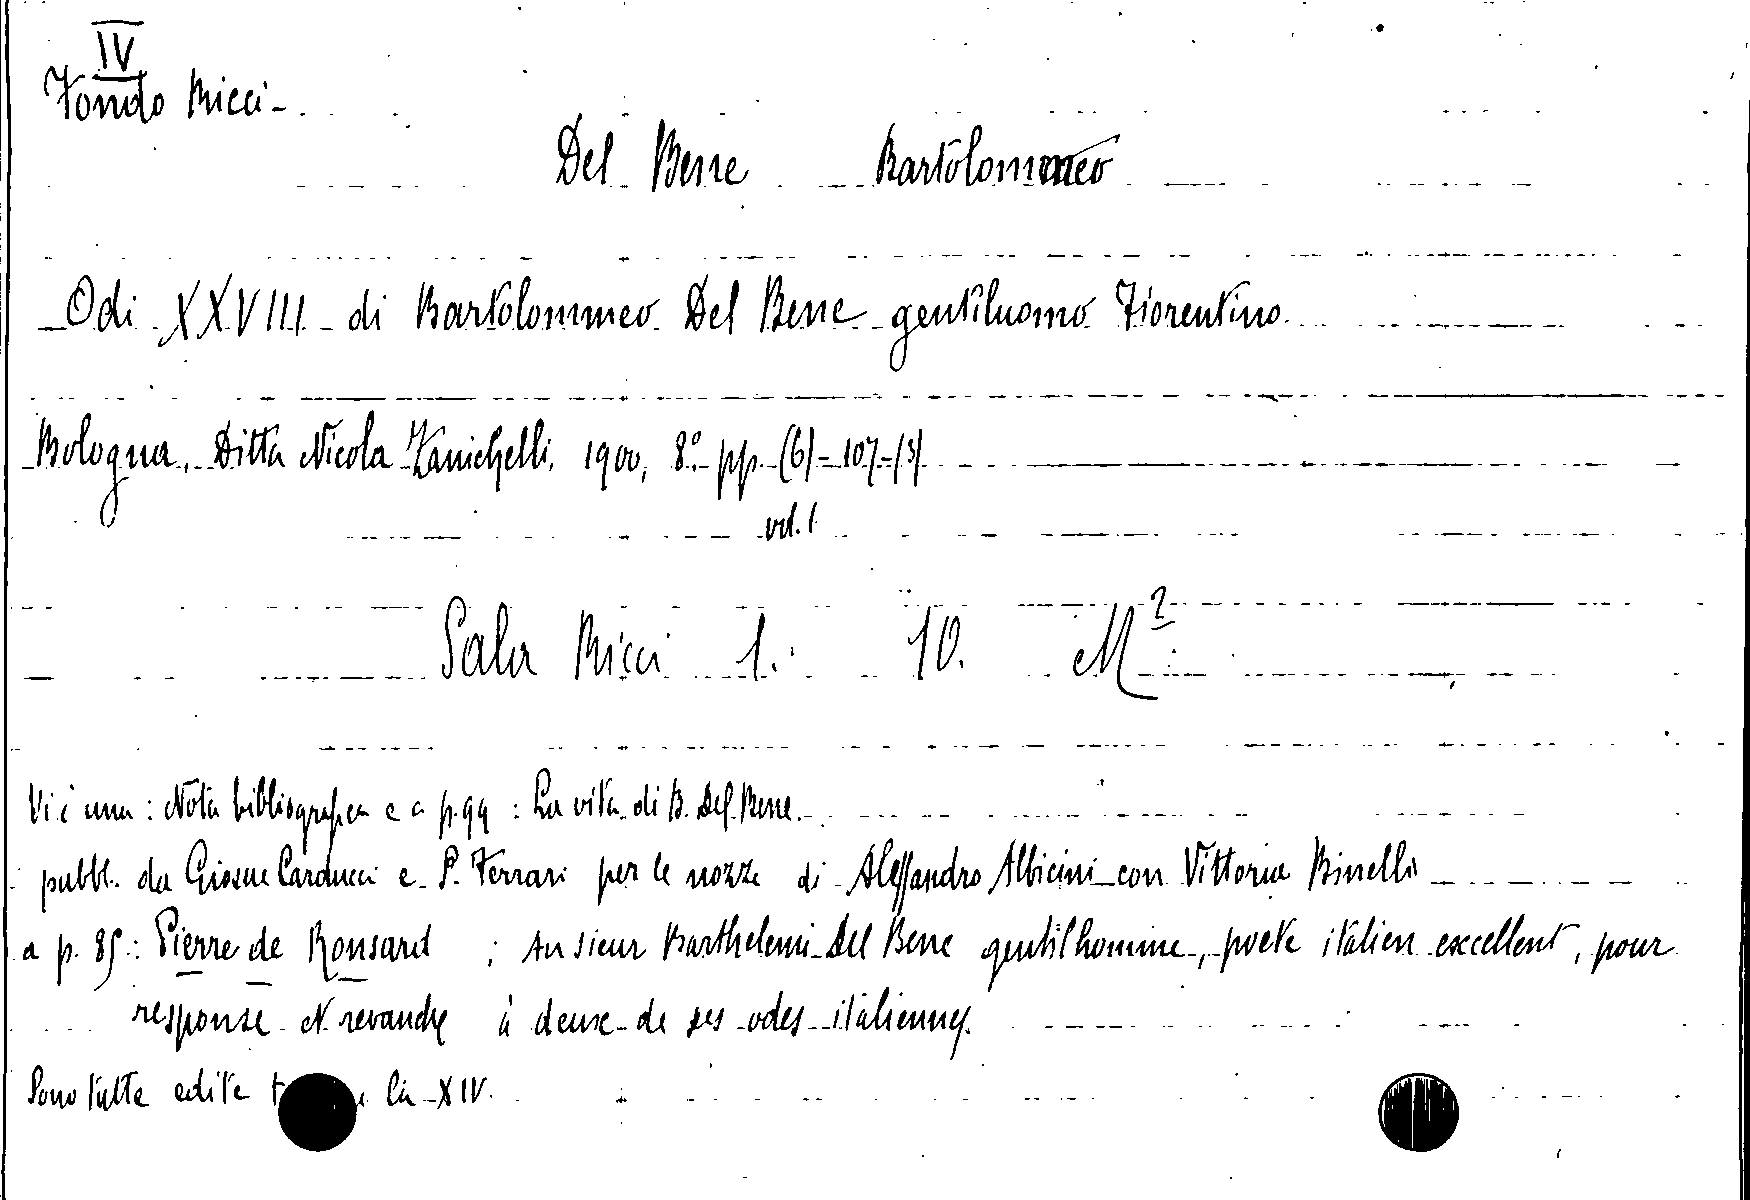 IV
Fondo Ricci -
Del Bene Bartolommeo
Odi XXVIII di Bartolommeo Del Bene gentiluomo Fiorentino.
Bologna, Ditta Nicola Zanichelli, 1900, 8º pp. (6) - 107 - (3)
vol. 1
Sala Ricci 1. 10. M²
Vi è una : Nota bibliografica e a p. 99 : La vita di B. Del Bene.
pubbl. da Giosue Carducci e S. Ferrari per le nozze di Alessandro Albicini con Vittoria Binelli
a p. 85 : Pierre de Ronsard ; Au sieur Barthelemi Del Bene gentilhomme, poete italien excellent, pour
response et revanche à deux de ses odes italiennes.
Sono tutte edite la XIV.